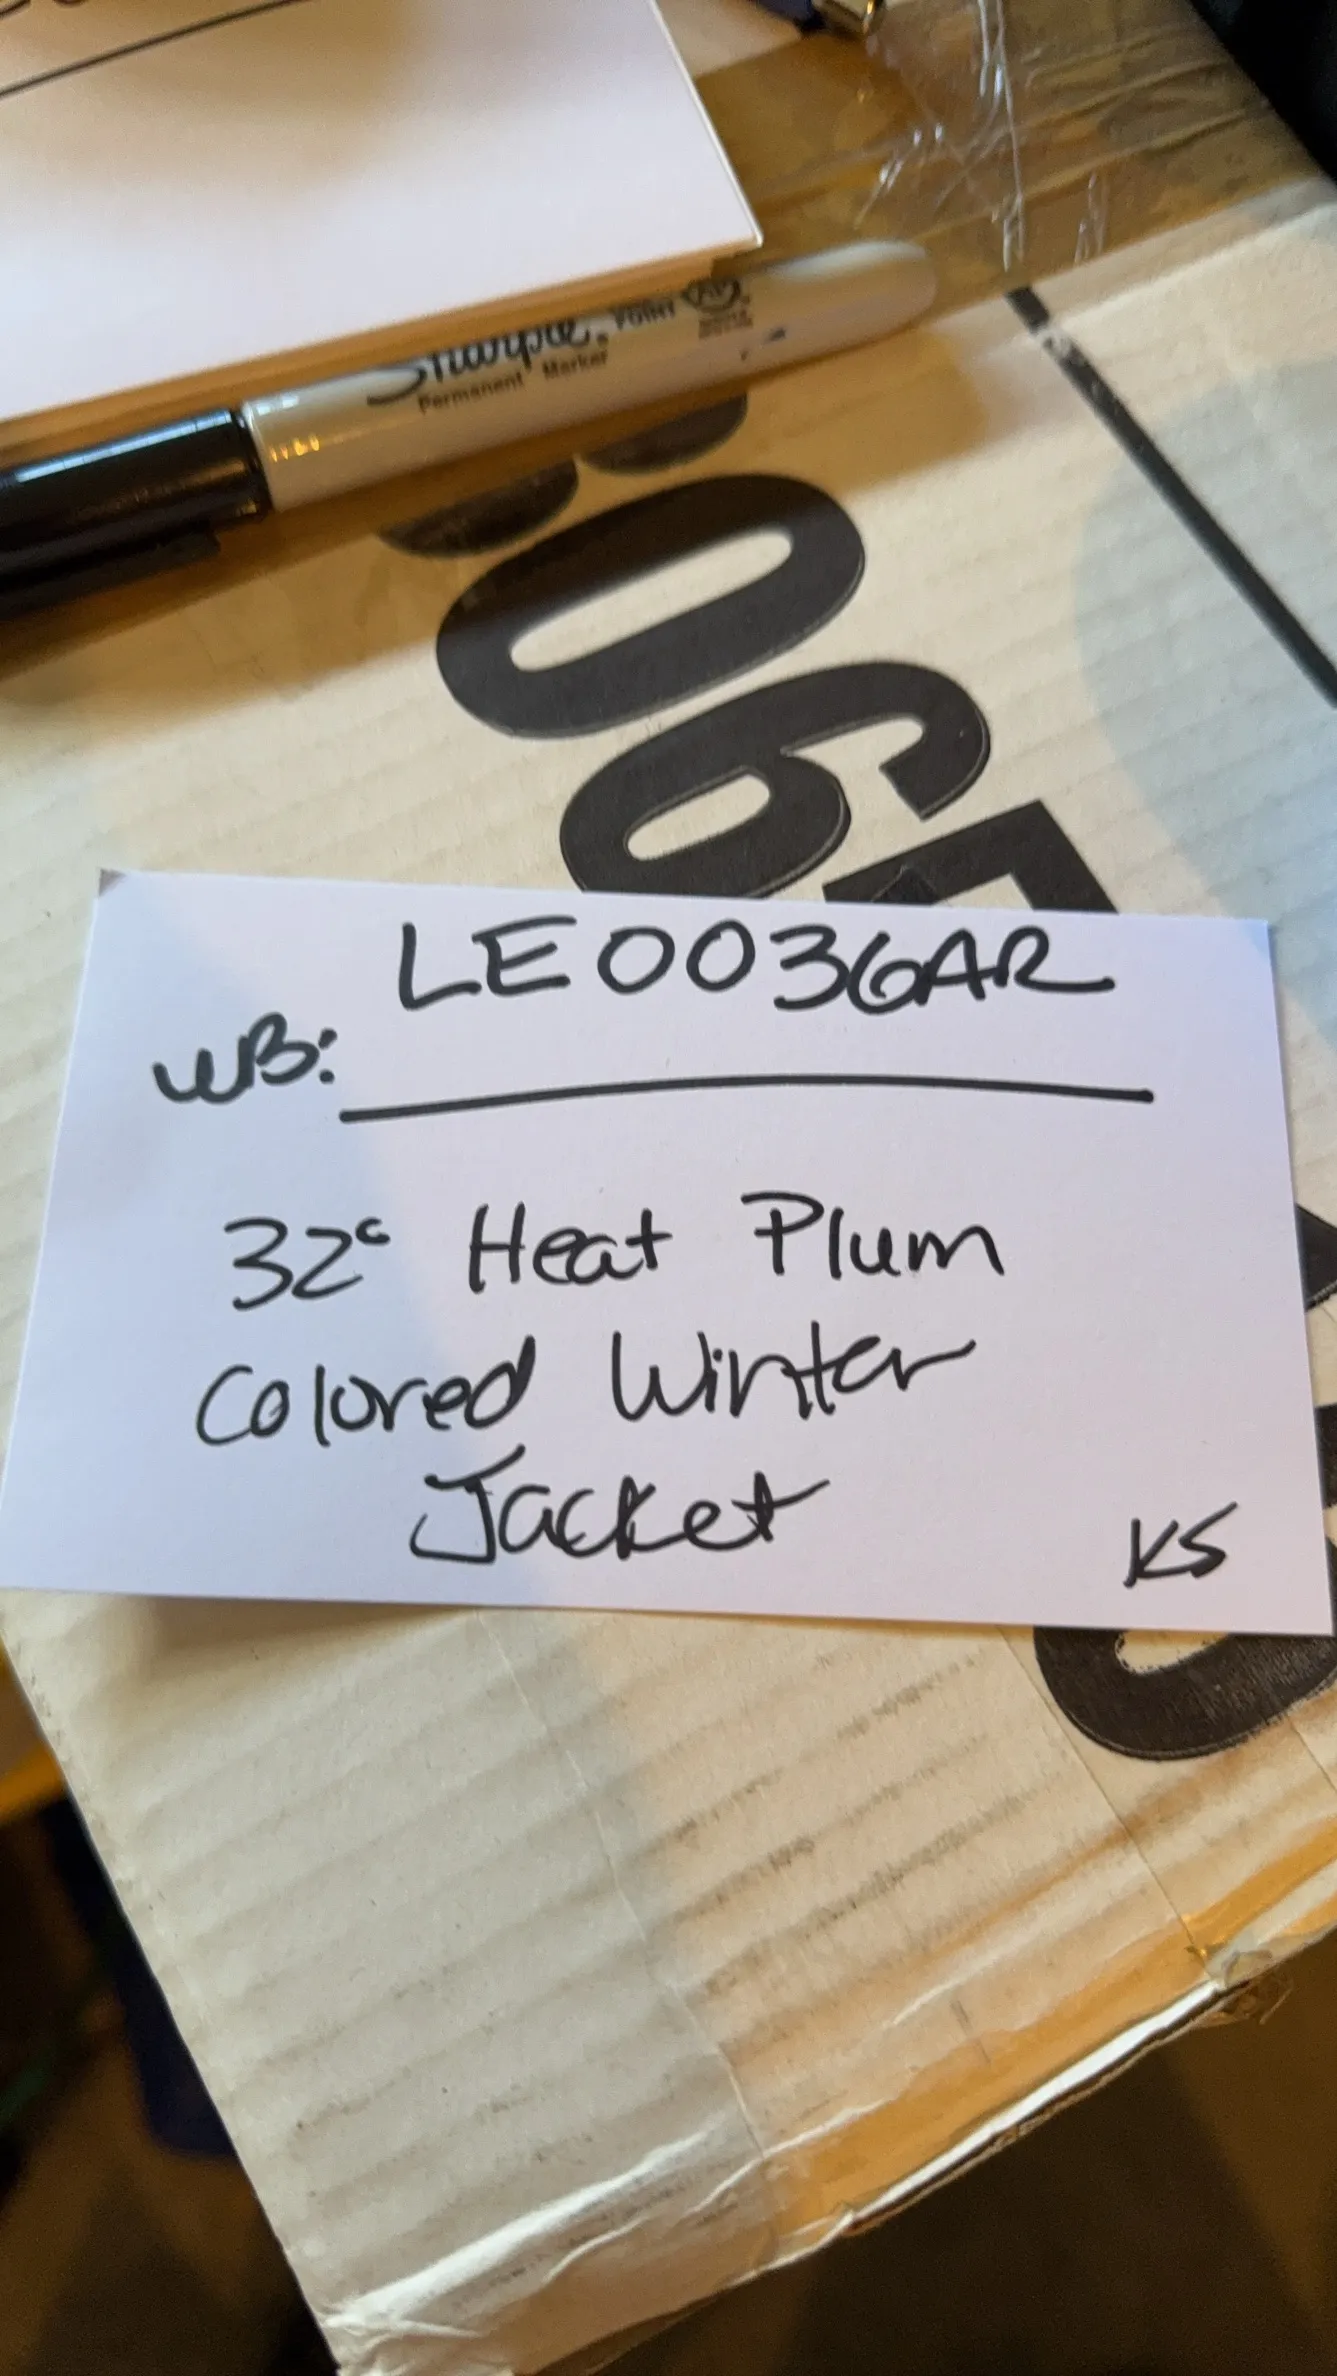 Sharpie.
POINT
AP
Permanent Marker
06
LE0036AR
WB:
32° Heat Plum
Colored Winter
Jacket
KS